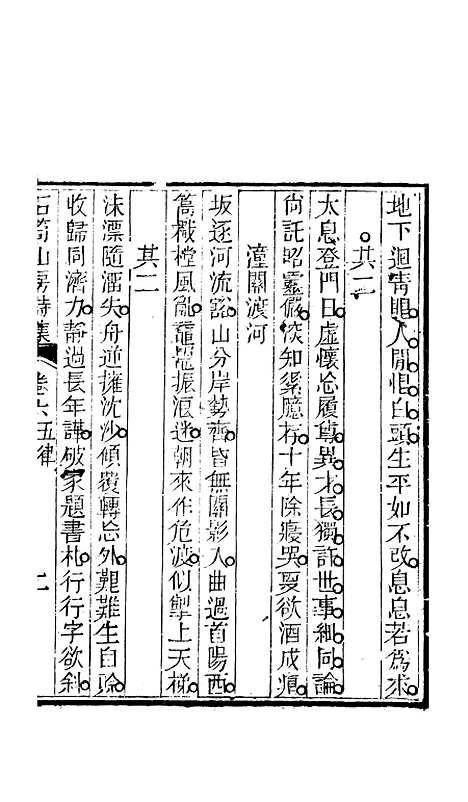 地下迴靑眼人間恨白頭生平如不改息息若爲求
其二
太息登門日虛懷忘履尊異才長獨許世事細同論
尙託昭靈儼從知梁臆存十年除寢哭耍欲酒成痕
潼關渡河
坂逐河流豁山分岸勢齊皆無關影入曲過首陽西
篙檝樘風亂黿鼉振浪迷朝來作危渡似掣上天梯
其二
沫漂隨洄失舟逆擁沈沙傾覆轉忘外艱難生自
收歸同濟力靜過長年譁破家題書札行行字欲斜
石笥山房詩集 卷六五律 二